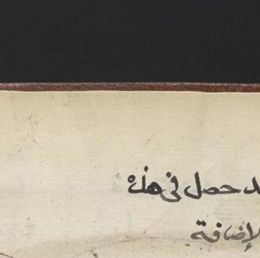 حصل في هذه
الإضافة